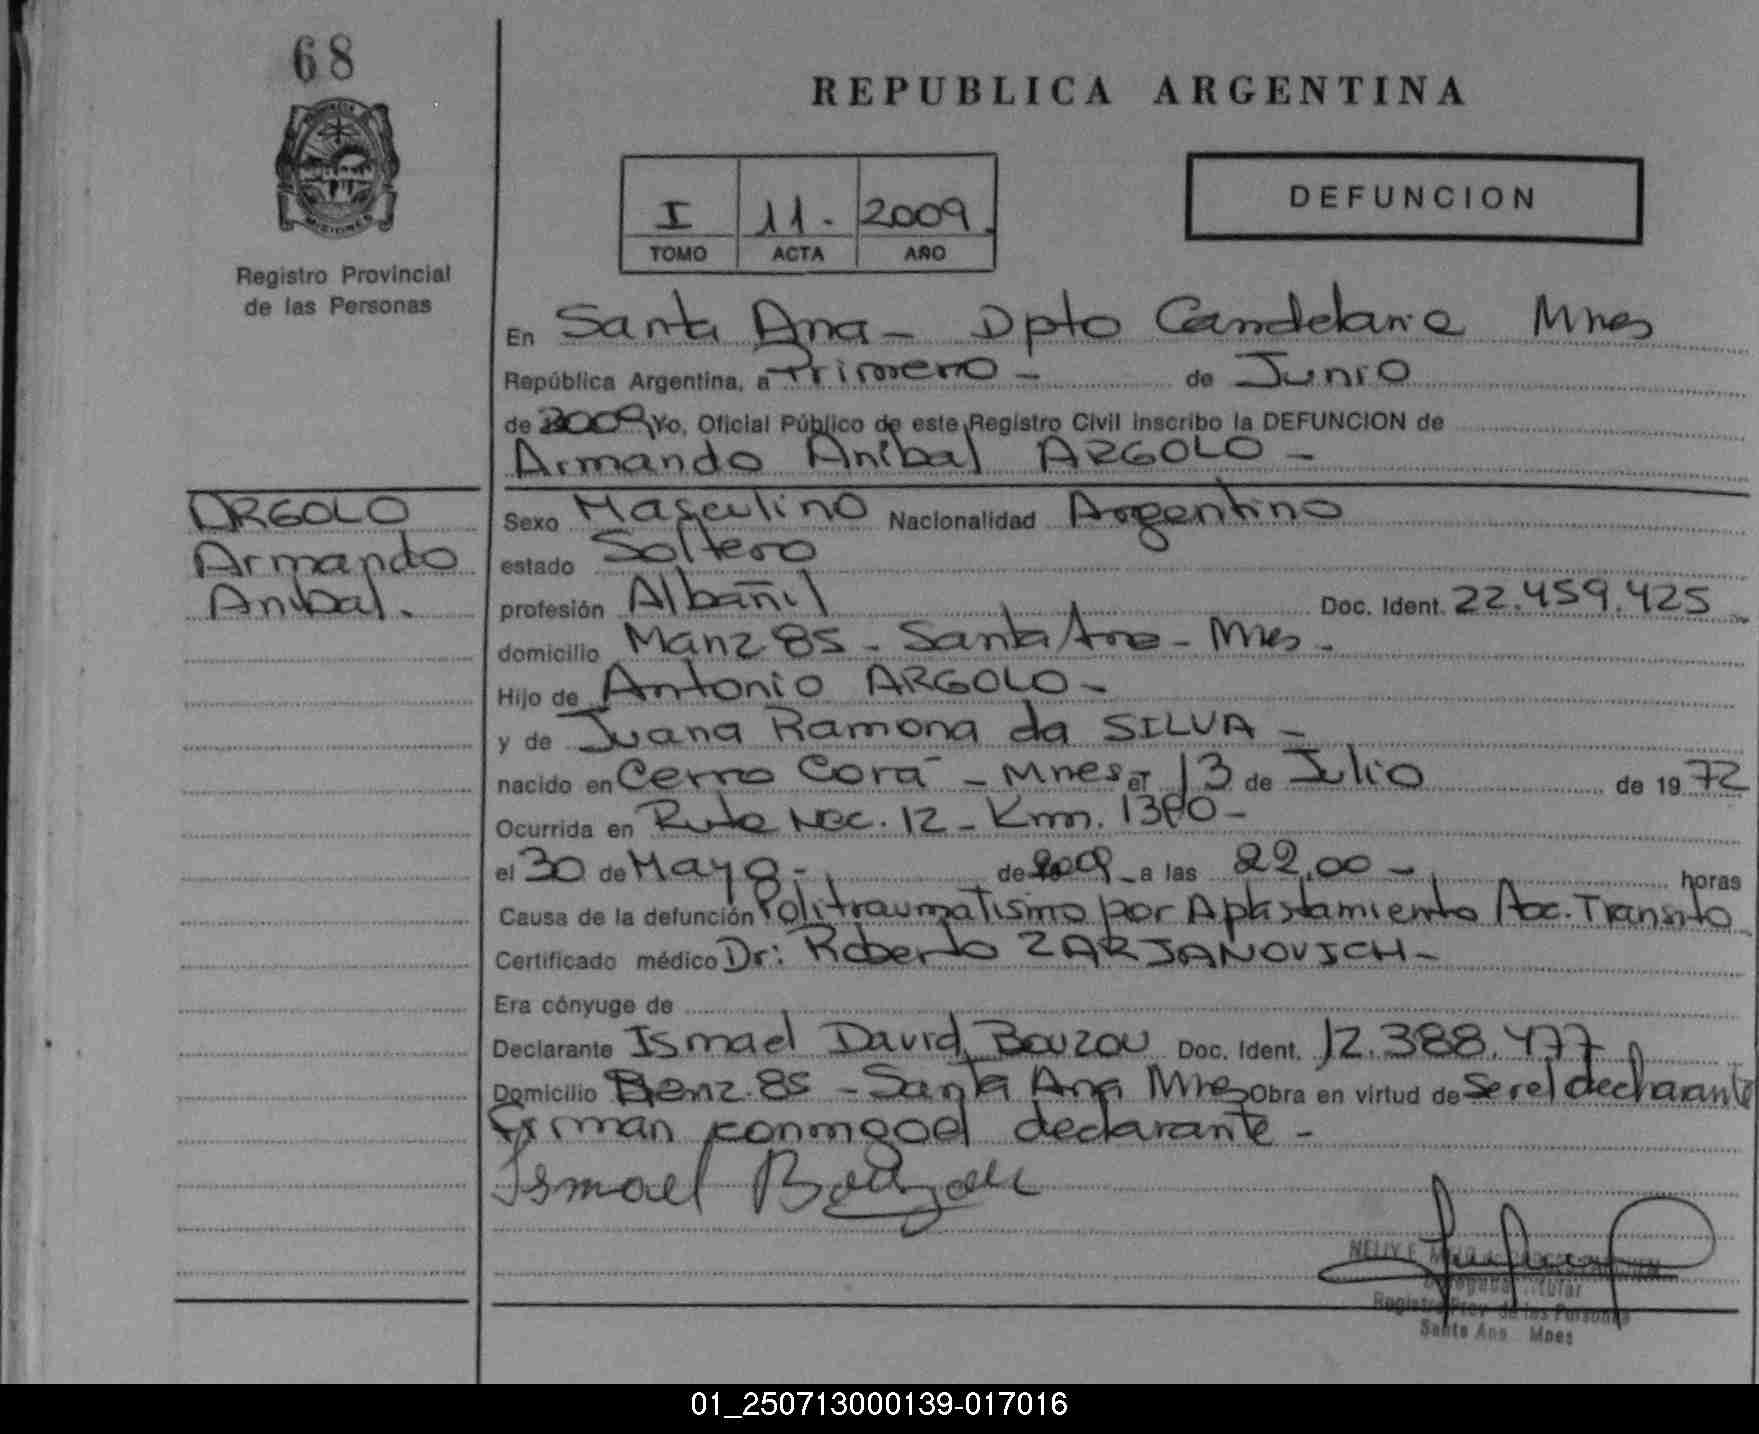 68
PROVINCIA
MISIONES
Registro Provincial
de las Personas
REPUBLICA ARGENTINA
I 11. 2009.
TOMO ACTA AÑO
DEFUNCION
En Santa Ana - Dpto Candelaria Mnes
República Argentina, a Primero - de Junio
de 2009 Yo, Oficial Público de este Registro Civil inscribo la DEFUNCION de
Armando Anibal ARGOLO -
ARGOLO
Armando
Anibal.
Sexo Masculino Nacionalidad Argentino
estado Soltero
profesión Albañil Doc. Ident. 22.459.425
domicilio Manz 85 - Santa Ana - Mnes -
Hijo de Antonio ARGOLO -
y de Juana Ramona da SILVA -
nacido en Cerro Corá - Mnes el 13 de Julio de 1972
Ocurrida en Ruta Nac. 12 - Km. 1380 -
el 30 de Mayo - de 2009 - a las 22,00 - horas
Causa de la defunción Politraumatismo por Aplastamiento Acc. Transito
Certificado médico Dr: Roberto ZARJANOVICH -
Era cónyuge de
Declarante Ismael David Bouzou Doc. Ident. 12.388.477
Domicilio 85 - Santa Ana Mnes Obra en virtud de Ser el declarante
firman conmigo el declarante -
Ismael Bouzou
NELLY
Titular
Registro Prov. de las Personas
Santa Ana Mnes
01_250713000139-017016